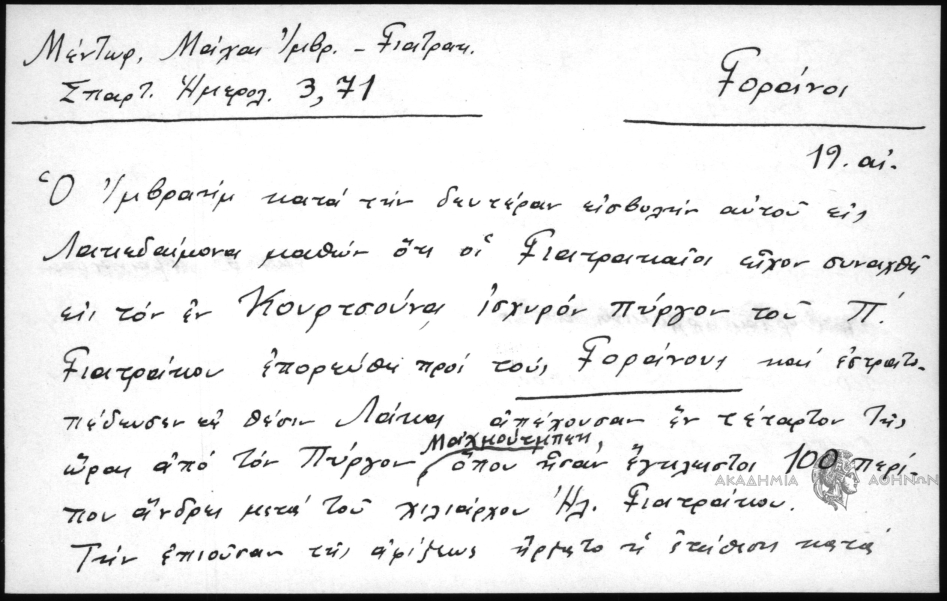 Μέντωρ, Μάχαι Ἰμβρ. – Γιατρακ.
Σπαρτ. Ἡμερολ. 3, 71
Γοράνοι
19. αἰ.
Ὁ Ἰμβραήμ κατά τήν δευτέραν εἰσβολήν αὐτοῦ εἰς
Λακεδαίμονα μαθών ὅτι οἱ Γιατρακαῖοι εἶχον συναχθῆ
εἰς τόν ἐν Κουρτσούνᾳ ἰσχυρόν πύργον τοῦ Π.
Γιατράκου ἐπορεύθη πρός τούς Γοράνους καί ἐστρατο-
πέδευσεν εἰς θέσιν Λάκα ἀπέχουσαν ἕν τέταρτον τῆς
ὥρας ἀπό τόν Πύργον Μαχμούτμπεη, ὅπου ἦσαν ἔγκλειστοι 100 περί-
που ἄνδρες μετά τοῦ χιλιάρχου Ἠλ. Γιατράκου.
Τήν ἐπιοῦσαν τῆς ἀφίξεως ἤρξατο ἡ ἐπίθεσις κατά
ΑΚΑΔΗΜΙΑ ΑΘΗΝΩΝ